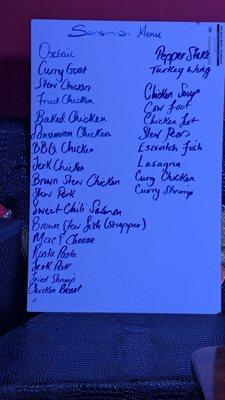 Sansimian Menu
Oxtail
Curry Goat
Stew Chicken
Fried Chicken
Baked Chicken
Sansimian Chicken
BBQ Chicken
Jerk Chicken
Brown Stew Chicken
Stew Pork
Sweet Chili Salmon
Brown Stew Fish (snapper)
Mac & Cheese
Rasta Pasta
Jerk Pork
Fried Shrimp
Chicken Breast
Pepper Steake
Turkey Wing
Chicken Soup
Cow foot
Chicken foot
Stew Peas
Escovitch fish
Lasagna
Curry Chicken
Curry Shrimp